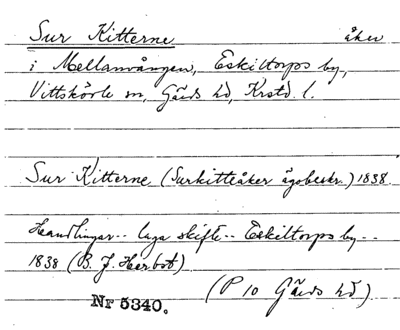 Sur Kitterne åker
i Mellanvången, Eskiltorps by,
Vittskövle sn, Gärds hd, Krstd. l.
Sur Kitterne (Surkitteåker ägobeskr.) 1838
Handlingar -- laga skifte -- Eskiltorps by --
1838 (B. J. Herbst)
Nr 5340. (P 10 Gärds hd)